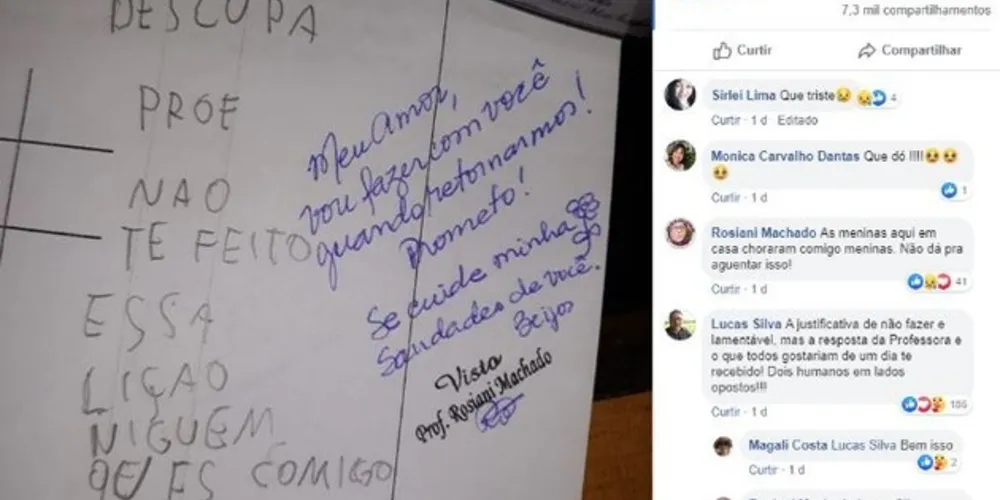 DESCUPA
PROE
NAO
TE FEITO
ESSA
LIÇAO
NIGUEM
COMIGO
Meu Amor,
vou fazer com você
quando retornarmos!
Prometo!
Se cuide minha
Saudades de você.
Beijos
Visto
Prof. Rosiani Machado
7,3 mil compartilhamentos
Curtir
Compartilhar
Sirlei Lima Que triste😢 4
Curtir · 1 d Editado
Monica Carvalho Dantas Que dó !!!!😢😢
😢
1
Curtir · 1 d
Rosiani Machado As meninas aqui em
casa choraram comigo meninas. Não dá pra
aguentar isso!
41
Curtir · 1 d
Lucas Silva A justificativa de não fazer e
lamentável, mas a resposta da Professora e
o que todos gostariam de um dia te
recebido! Dois humanos em lados
opostos!!!!
186
Curtir · 1 d
Magali Costa Lucas Silva Bem isso
2
Curtir · 1 d